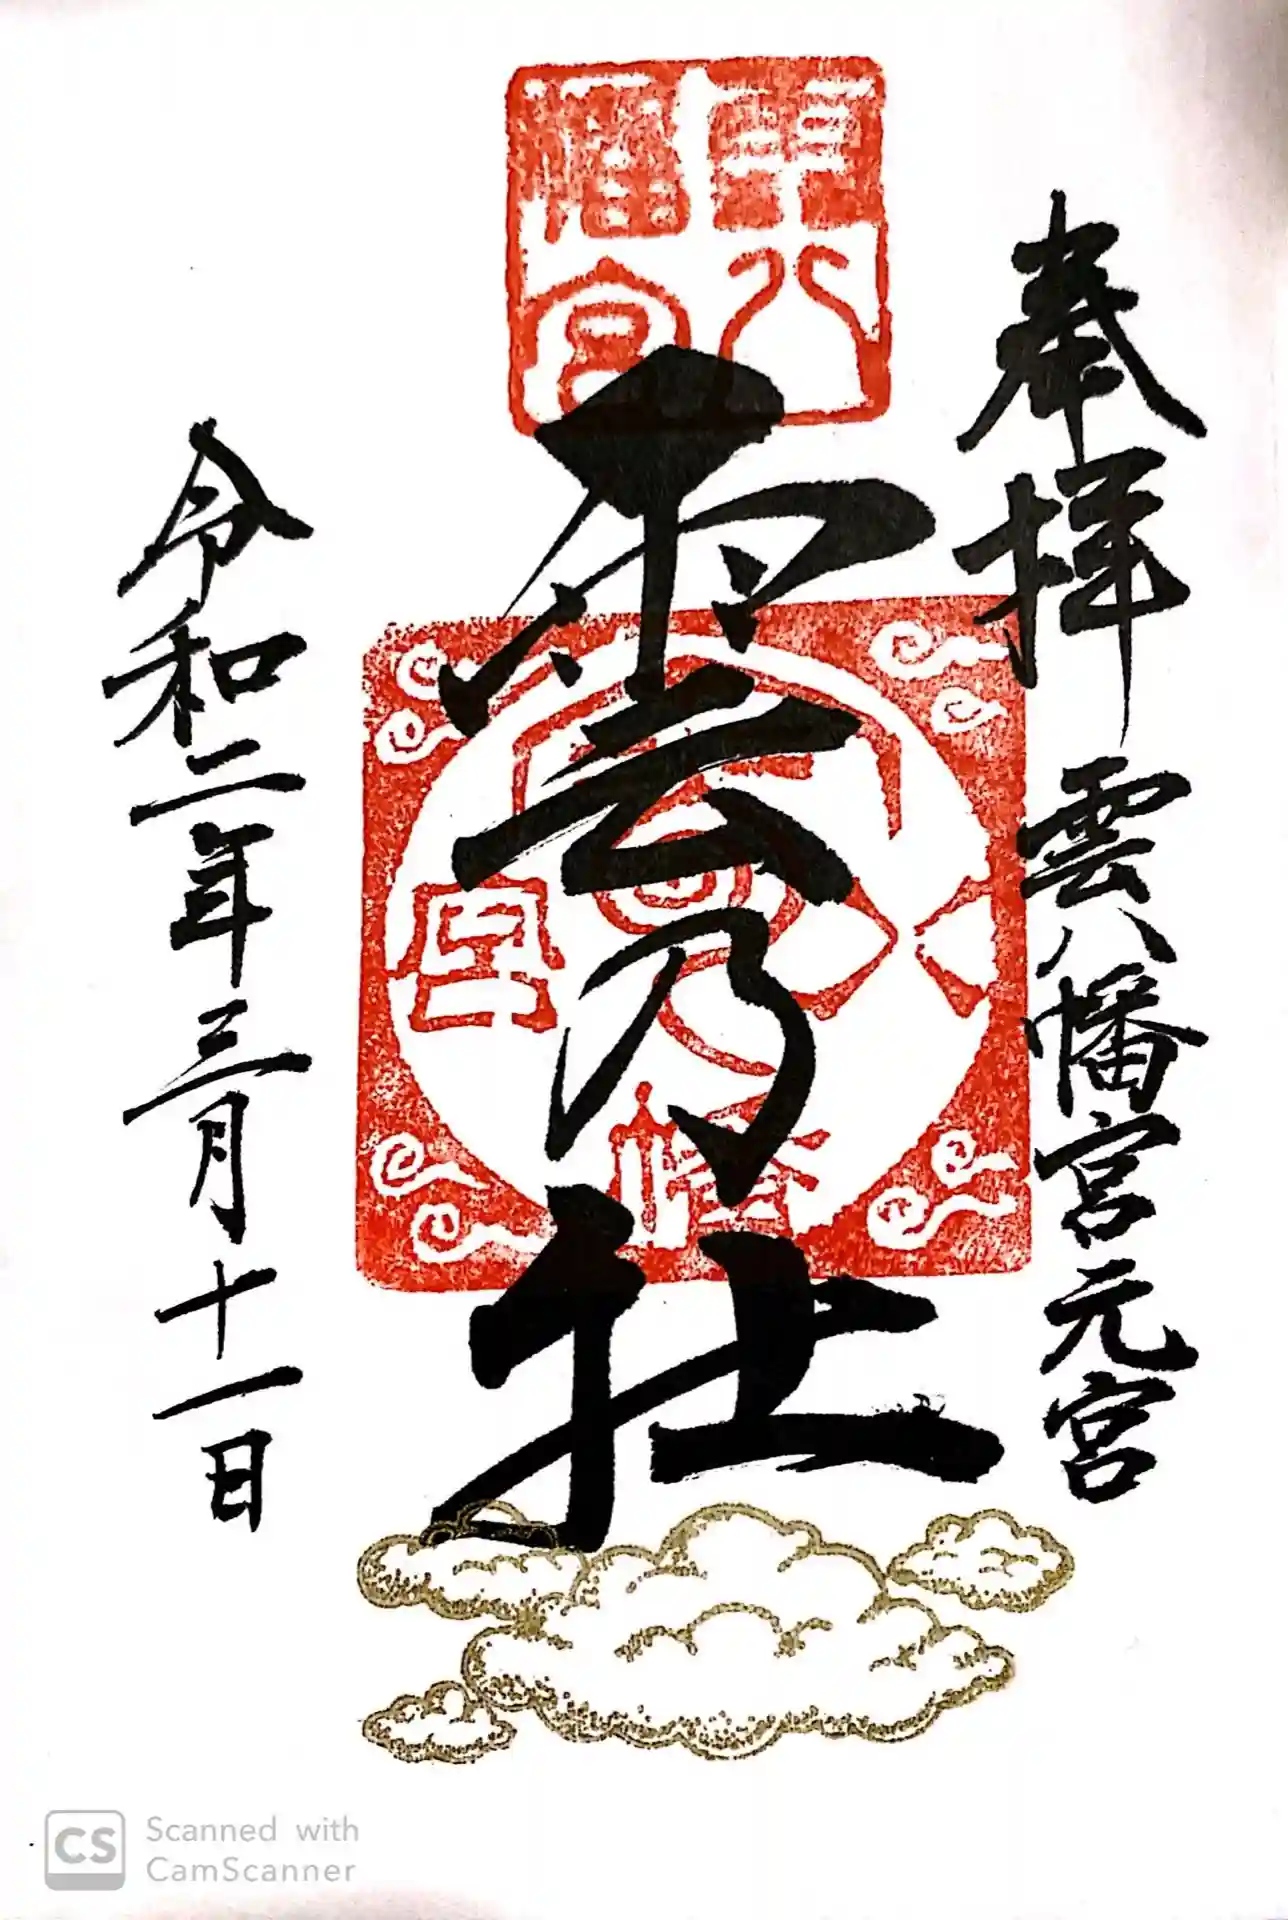 奉拝 雲八幡宮元宮
雲乃社
令和二年三月十一日
雲八幡宮
雲八幡宮
CS Scanned with CamScanner